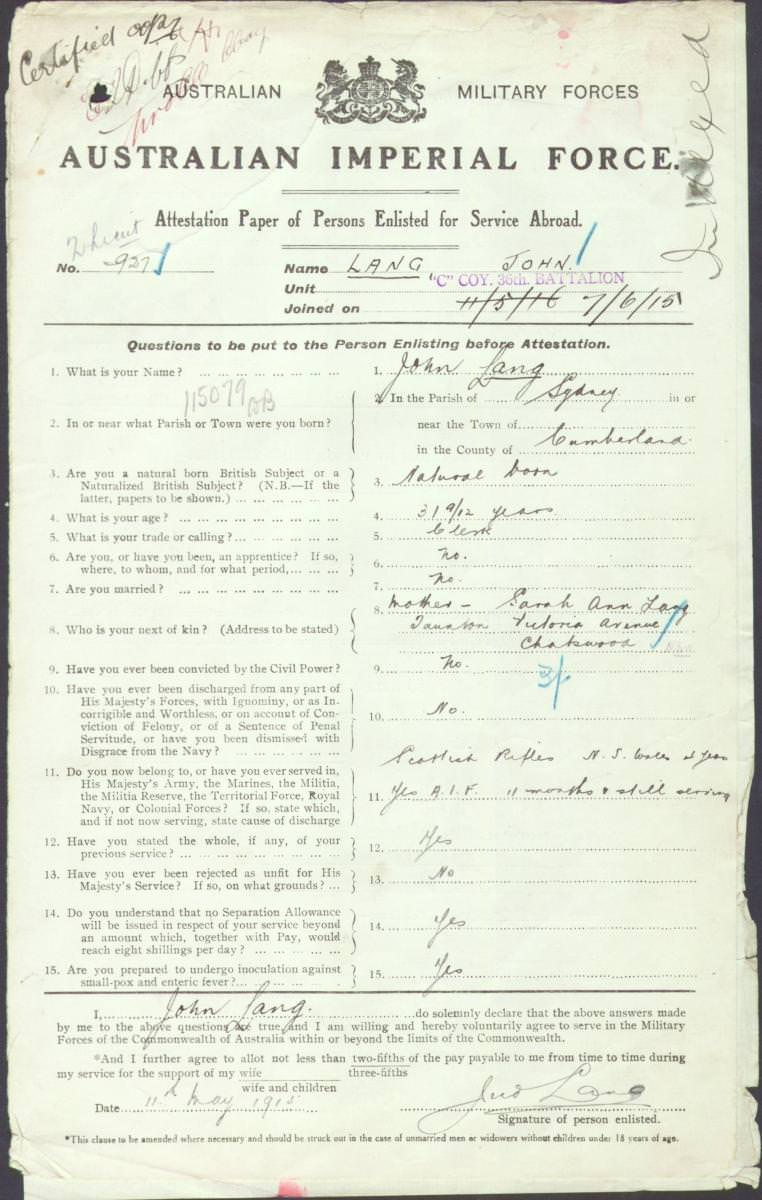 Certified copy
AUSTRALIAN MILITARY FORCES
AUSTRALIAN IMPERIAL FORCE.
Attestation Paper of Persons Enlisted for Service Abroad.
No. 927 Name LANG, JOHN.
Unit "C" COY. 36th. BATTALION
Joined on 11/5/16 7/6/15
Questions to be put to the Person Enlisting before Attestation.
1. What is your Name? ... 1. John Lang
115079
2. In or near what Parish or Town were you born? 2. In the Parish of Sydney in or
near the Town of
in the County of Cumberland
3. Are you a natural born British Subject or a
Naturalized British Subject? (N.B.—If the
latter, papers to be shown.) 3. Natural born
4. What is your age? 4. 31 9/12 years
5. What is your trade or calling? 5. Clerk
6. Are you, or have you been, an apprentice? If so,
where, to whom, and for what period, 6. No.
7. Are you married? 7. No.
8. Who is your next of kin? (Address to be stated) 8. Mother – Sarah Ann Lang
Taunton Victoria Avenue
Chatswood
9. Have you ever been convicted by the Civil Power? 9. No.
10. Have you ever been discharged from any part of
His Majesty's Forces, with Ignominy, or as In-
corrigible and Worthless, or on account of Con-
viction of Felony, or of a Sentence of Penal
Servitude, or have you been dismissed with
Disgrace from the Navy? 10. No.
Scottish Rifles N. S. Wales
11. Do you now belong to, or have you ever served in,
His Majesty's Army, the Marines, the Militia,
the Militia Reserve, the Territorial Force, Royal
Navy, or Colonial Forces? If so, state which,
and if not now serving, state cause of discharge 11. Yes A.I.F. 11 months & still serving
12. Have you stated the whole, if any, of your
previous service? 12. Yes
13. Have you ever been rejected as unfit for His
Majesty's Service? If so, on what grounds? ... 13. No
14. Do you understand that no Separation Allowance
will be issued in respect of your service beyond
an amount which, together with Pay, would
reach eight shillings per day? 14. Yes
15. Are you prepared to undergo inoculation against
small-pox and enteric fever? 15. Yes
I, John Lang. do solemnly declare that the above answers made
by me to the above questions are true, and I am willing and hereby voluntarily agree to serve in the Military
Forces of the Commonwealth of Australia within or beyond the limits of the Commonwealth.
*And I further agree to allot not less than two-fifths of the pay payable to me from time to time during
three-fifths
my service for the support of my wife
wife and children
Date 11th May 1915 Jno Lang
Signature of person enlisted.
*This clause to be amended where necessary and should be struck out in the case of unmarried men or widowers without children under 18 years of age.